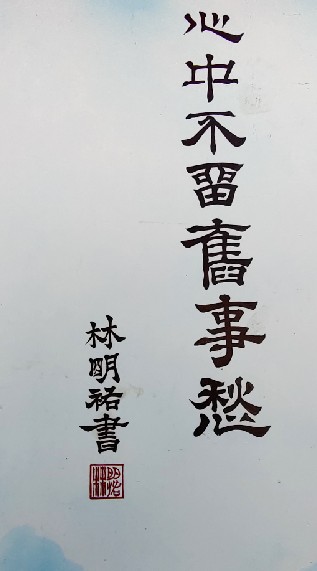 心中不留舊事愁
林明祐書